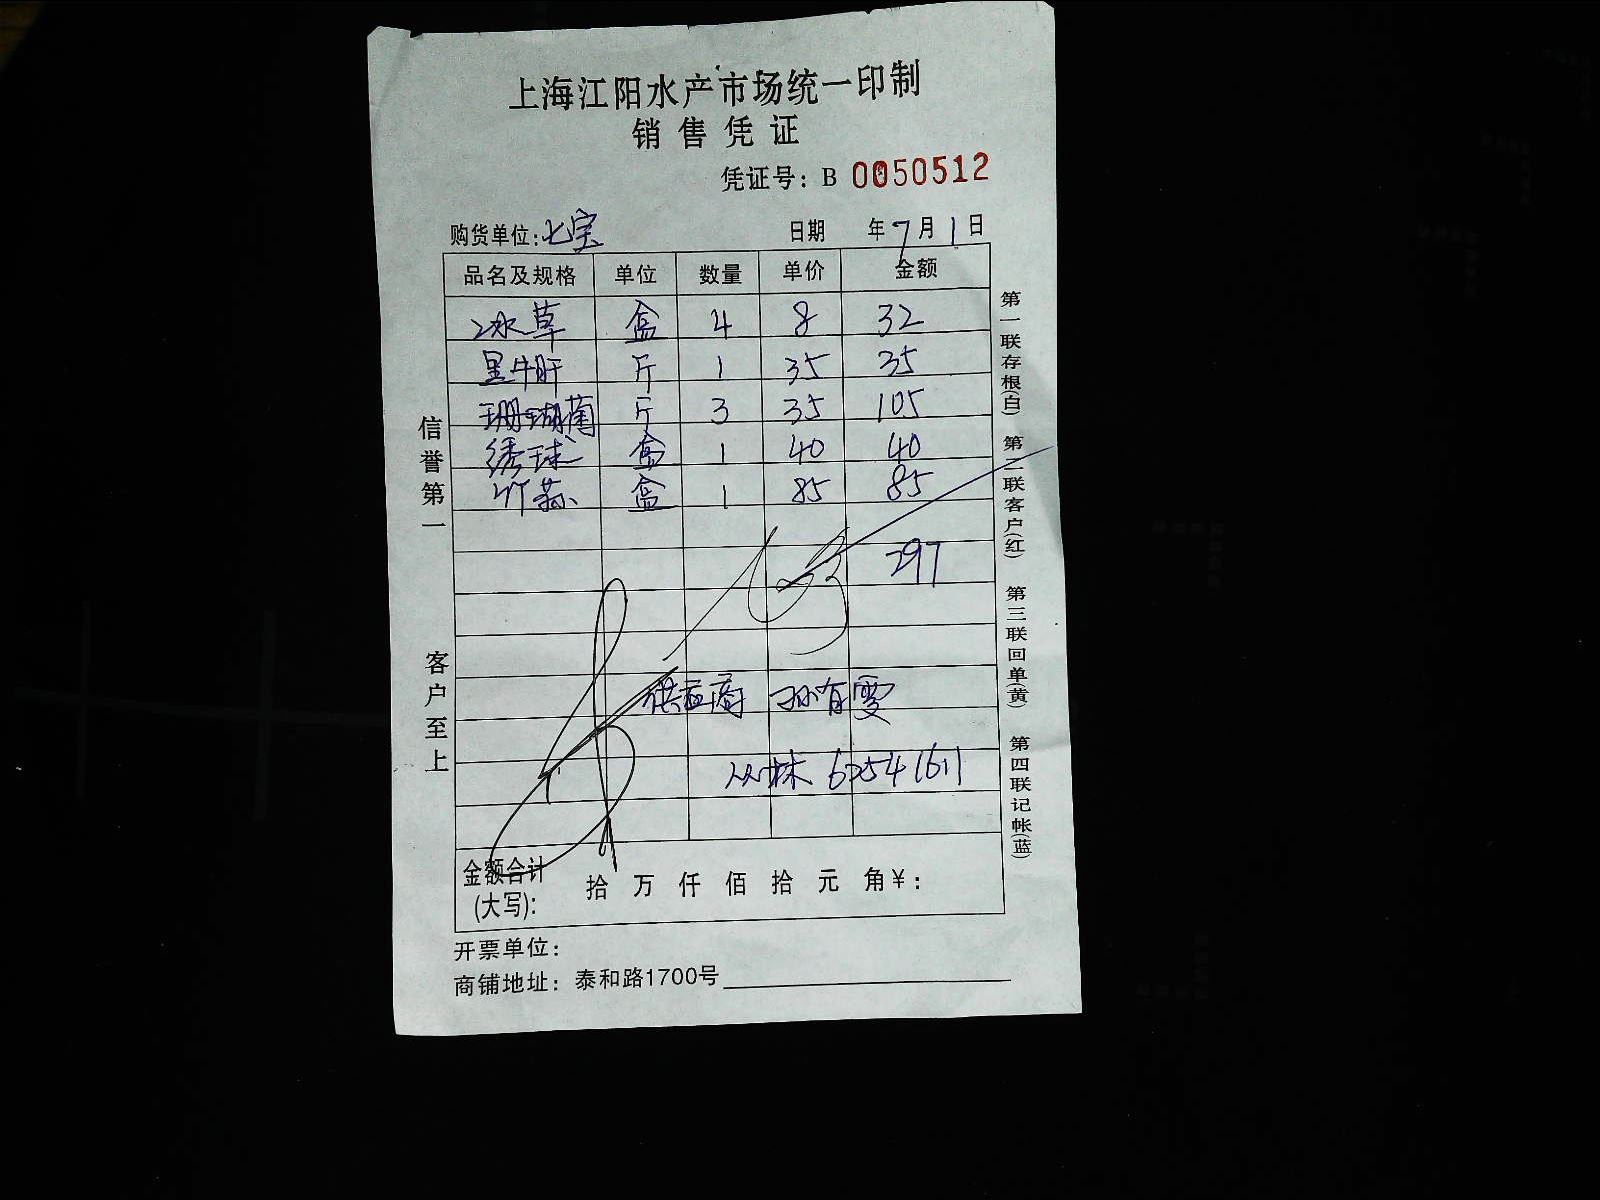 上海江阳水产市场统一印制
销售凭证
凭证号：B 0050512
购货单位：七宝 日期 年7月1日
品名及规格 单位 数量 单价 金额
冰草 盒 4 8 32
黑牛肝 斤 1 35 35
珊瑚菌 斤 3 35 105
绣球 盒 1 40 40
竹荪 盒 1 85 85
297
供应商 孙有雯
丛林 62541611
金额合计(大写)： 拾 万 仟 佰 拾 元 角￥：
开票单位：
商铺地址：泰和路1700号
信誉第一
客户至上
第一联存根(白)
第二联客户(红)
第三联回单(黄)
第四联记帐(蓝)